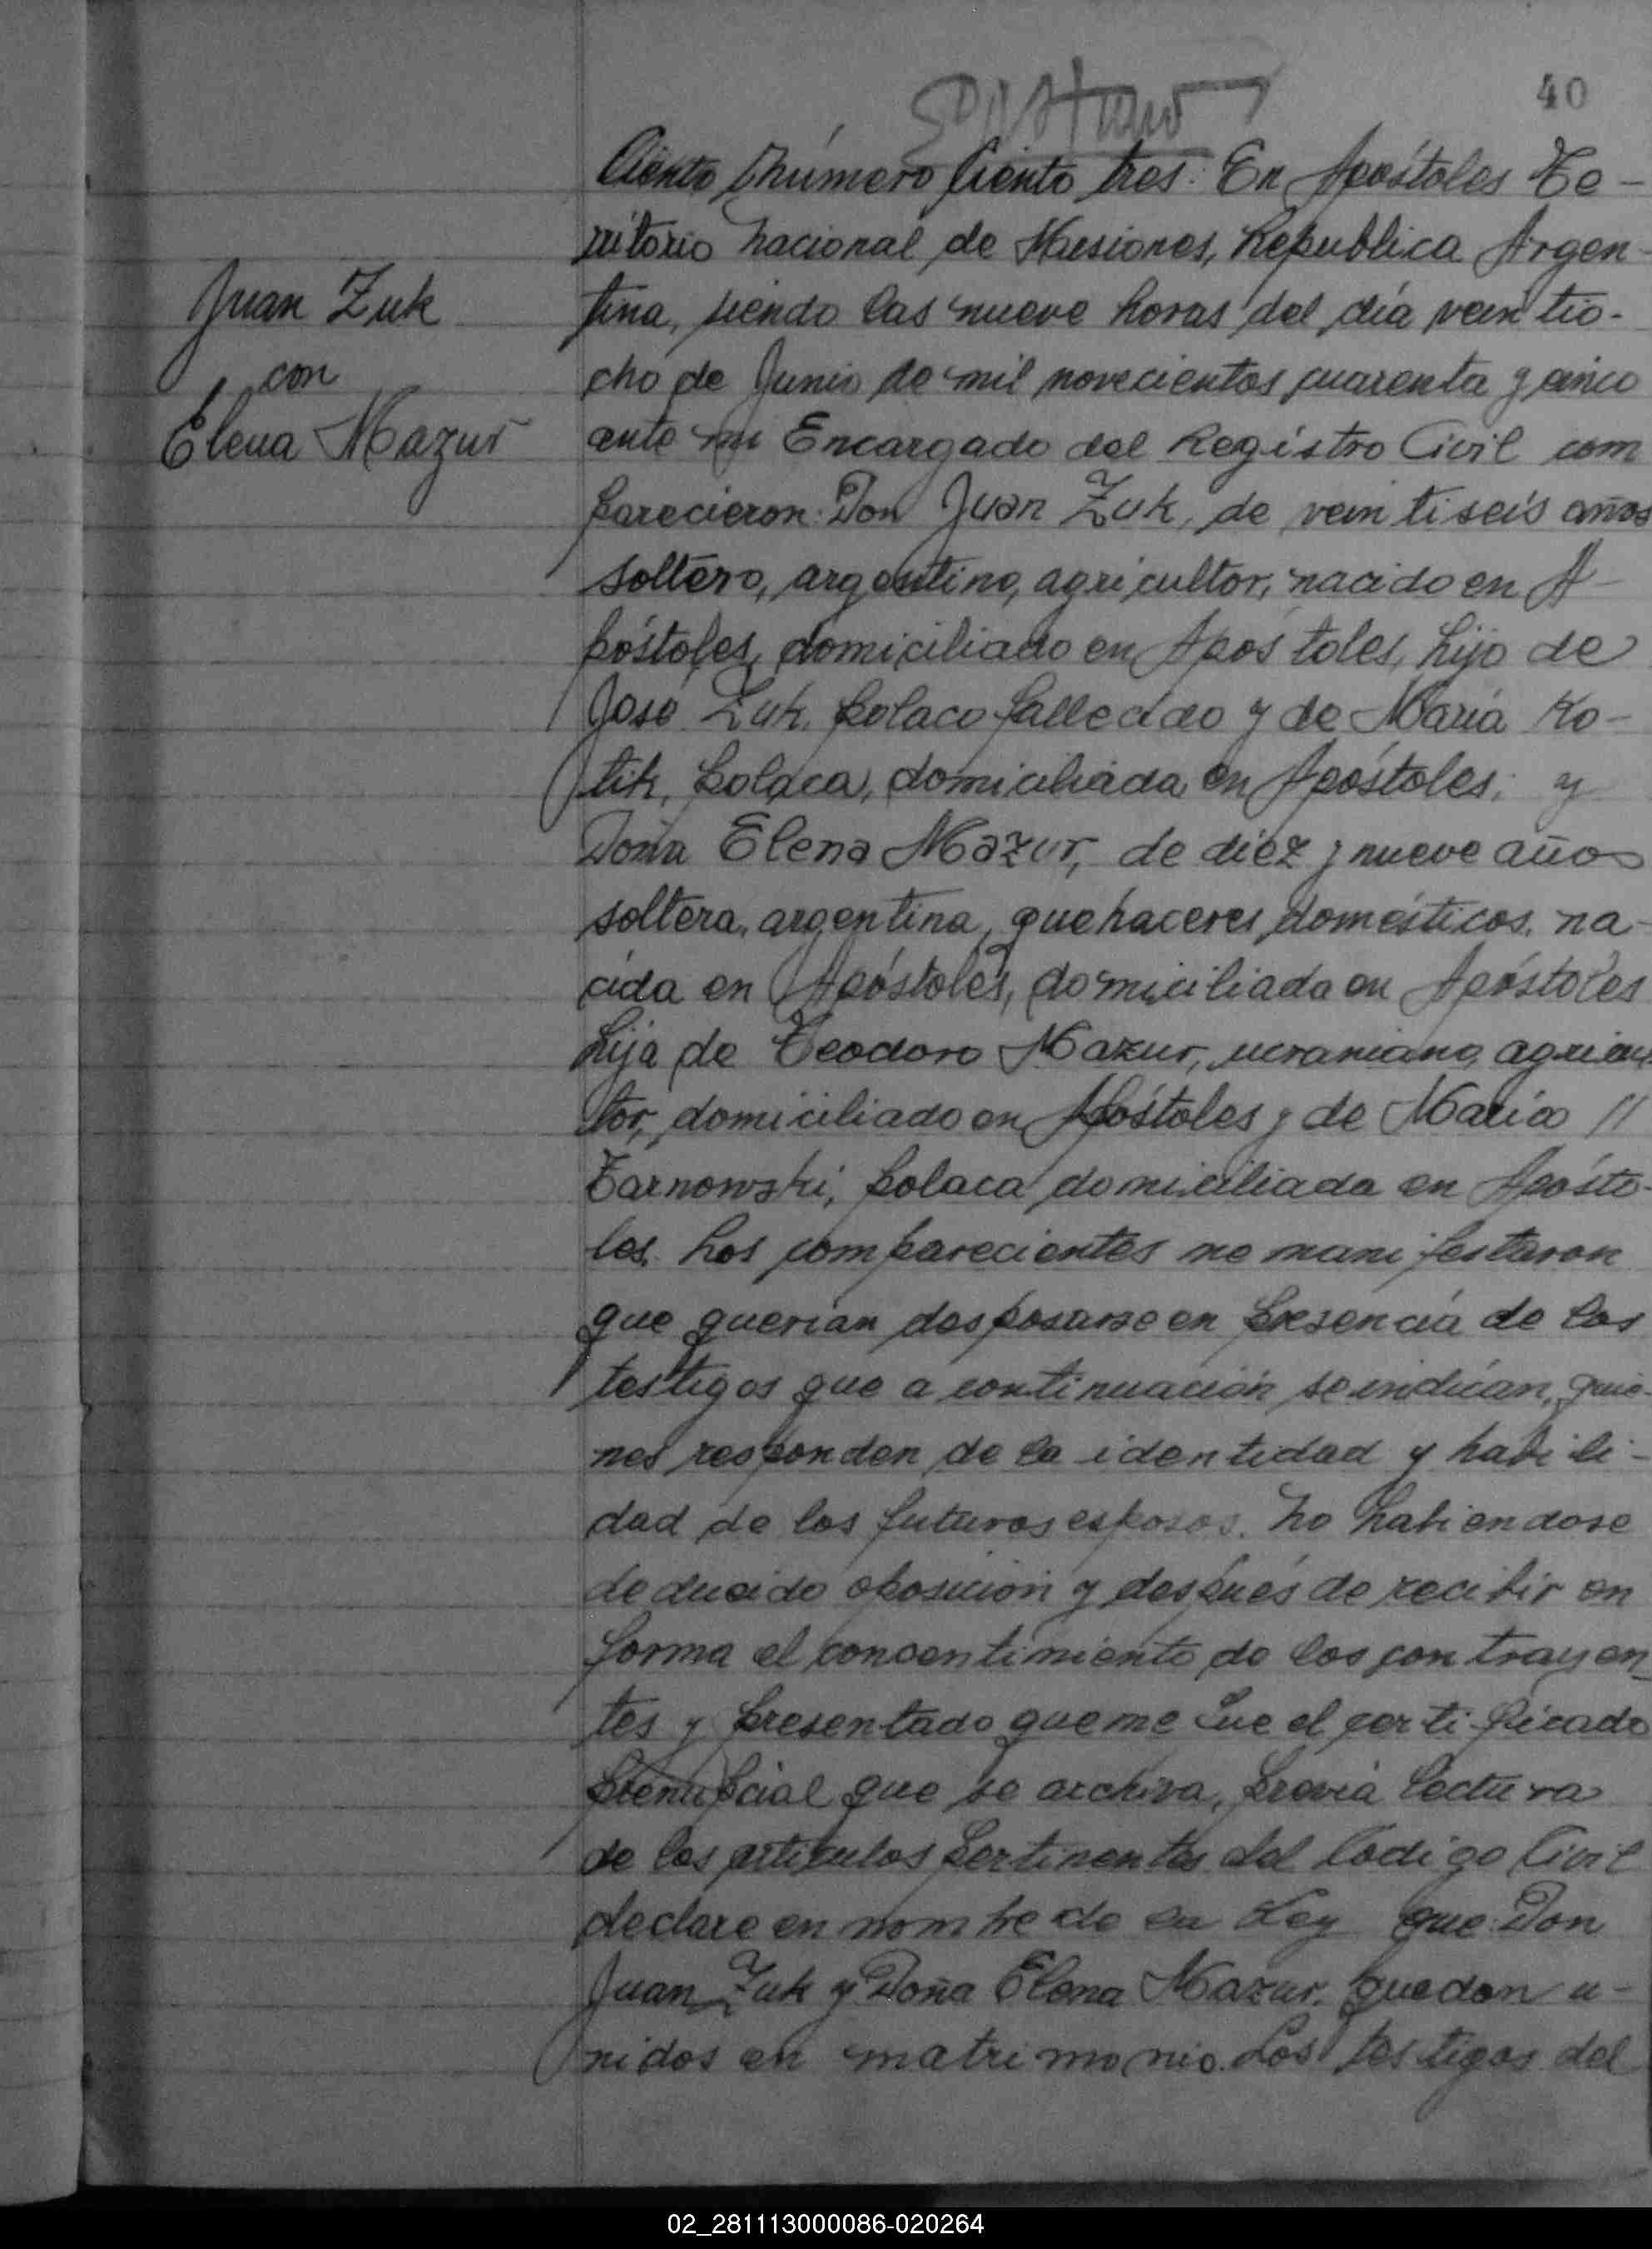 40
Ciento Número Ciento tres. En Apóstoles Te-
rritorio Nacional de Misiones, Republica Argen-
tina, siendo las nueve horas del día veintio-
cho de Junio de mil novecientos cuarenta y cinco
ante mi Encargado del Registro Civil com
parecieron Don Juan Zuk, de veintiseis años
soltero, argentino, agricultor, nacido en A-
póstoles, domiciliado en Apostoles, hijo de
José Zuk, polaco fallecido y de María Ko-
tik, polaca, domiciliada en Apóstoles; y
Doña Elena Mazur, de diez y nueve años
soltera, argentina, quehaceres domésticos, na-
cida en Apóstoles, domiciliada en Apóstoles
hija de Teodoro Mazur, ucraniano, agricul
tor, domiciliado en Apóstoles y de María //
Tarnowski, polaca domiciliada en Apósto-
les. Los comparecientes me manifestaron
que querían desposarse en presencia de los
testigos que a continuación se indican, quie
nes responden de la identidad y habili-
dad de los futuros esposos. No habiendose
deducido oposición y después de recibir en
forma el concentimiento de los contrayen
tes y presentado que me fue el certificado
prenupcial que se archiva, previa lectura
de los artículos pertinentes del Codigo Civil
declare en nombre de la Ley que Don
Juan Zuk y Doña Elena Mazur, quedan u-
nidos en matrimonio. Los testigos del
Juan Zuk
con
Elena Mazur
02_281113000086-020264